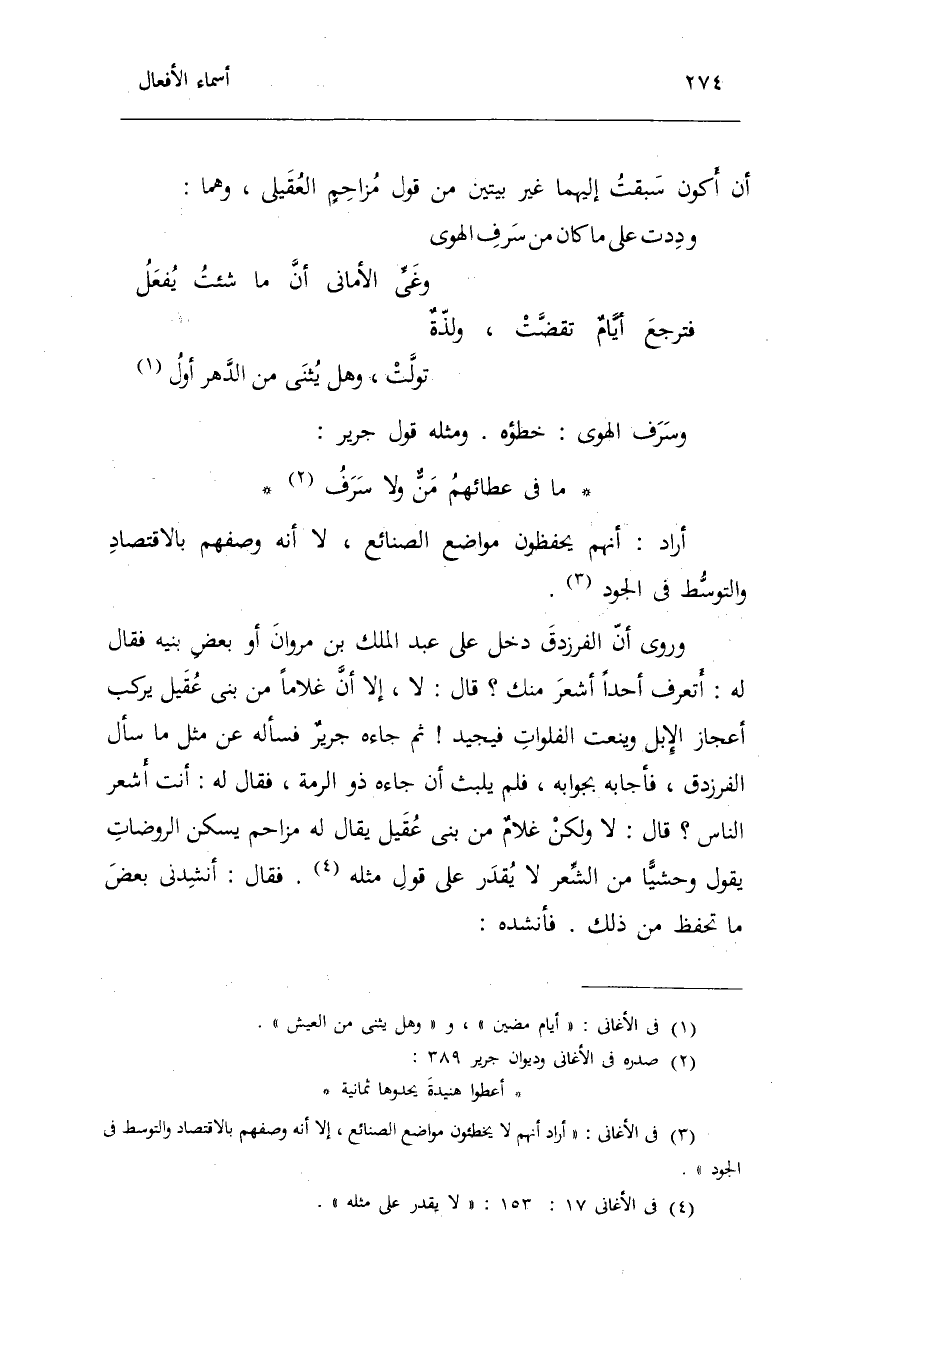 ٢٧٤ أسماء الأفعال
أن أَكون سَبقتُ إليهما غير بيتين من قول مُزاحِمٍ العُقَيلى ، وهما :
وَدِدت على ما كان من سَرَفِ الهوى
وغَىِّ الأمانى أنَّ ما شئتُ يُفعَلُ
فترجعَ أيَّامٌ تقضَّتْ ، ولذّةٌ
تولَّتْ ، وهل يُثنَى من الدَّهر أولُ (١)
وسَرَف الهوى : خطؤه . ومثله قول جرير :
* ما فى عطائهمُ مَنٌّ ولا سَرَفُ (٢) *
أراد : أنهم يحفظون مواضع الصنائع ، لا أنه وصفهم بالاقتصادِ
والتوسُّط فى الجود (٣) .
وروى أنّ الفرزدقَ دخل على عبد الملك بن مروانَ أو بعضِ بنيه فقال
له : أَتعرف أحداً أشعرَ منك ؟ قال : لا ، إلا أنَّ غلاماً من بنى عُقَيل يركب
أعجاز الإِبل وينعت الفلواتِ فيجيد ! ثم جاءه جريرٌ فسأله عن مثل ما سأل
الفرزدق ، فأجابه بجوابه ، فلم يلبث أن جاءه ذو الرمة ، فقال له : أنت أَشعر
الناس ؟ قال : لا ولكنْ غلامٌ من بنى عُقَيل يقال له مزاحم يسكن الروضاتِ
يقول وحشيًّا من الشِّعر لا يُقدَر على قولِ مثله (٤) . فقال : أنشِدنى بعضَ
ما تحفظ من ذلك . فأنشده :
(١) فى الأغانى : « أيام مضين » ، و « وهل يثنى من العيش » .
(٢) صدره فى الأغانى وديوان جرير ٣٨٩ :
* أعطوا هنيدةَ يحدوها ثمانية *
(٣) فى الأغانى : « أراد أنهم لا يخطئون مواضع الصنائع ، إلا أنه وصفهم بالاقتصاد والتوسط فى
الجود » .
(٤) فى الأغانى ١٧ : ١٥٣ : « لا يقدر على مثله » .